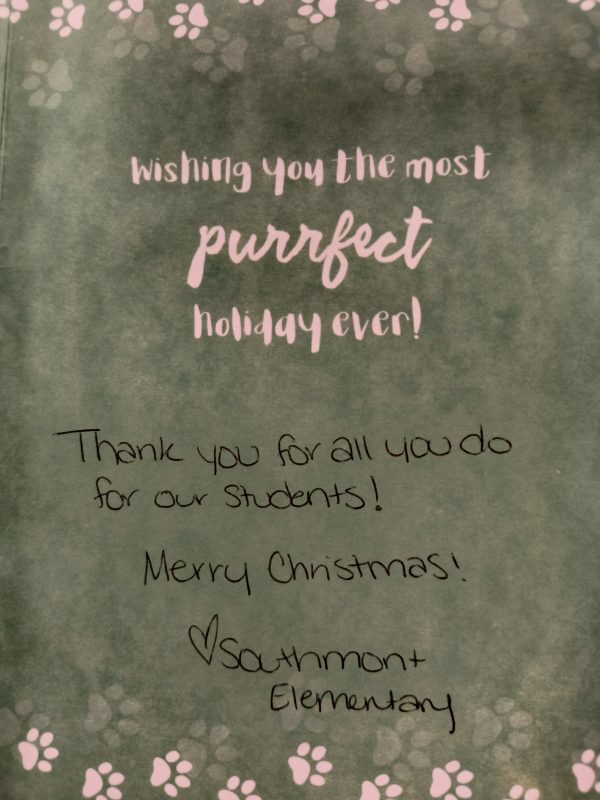 wishing you the most
purrfect
holiday ever!
Thank you for all you do
for our students!
Merry Christmas!
♡Southmont
Elementary